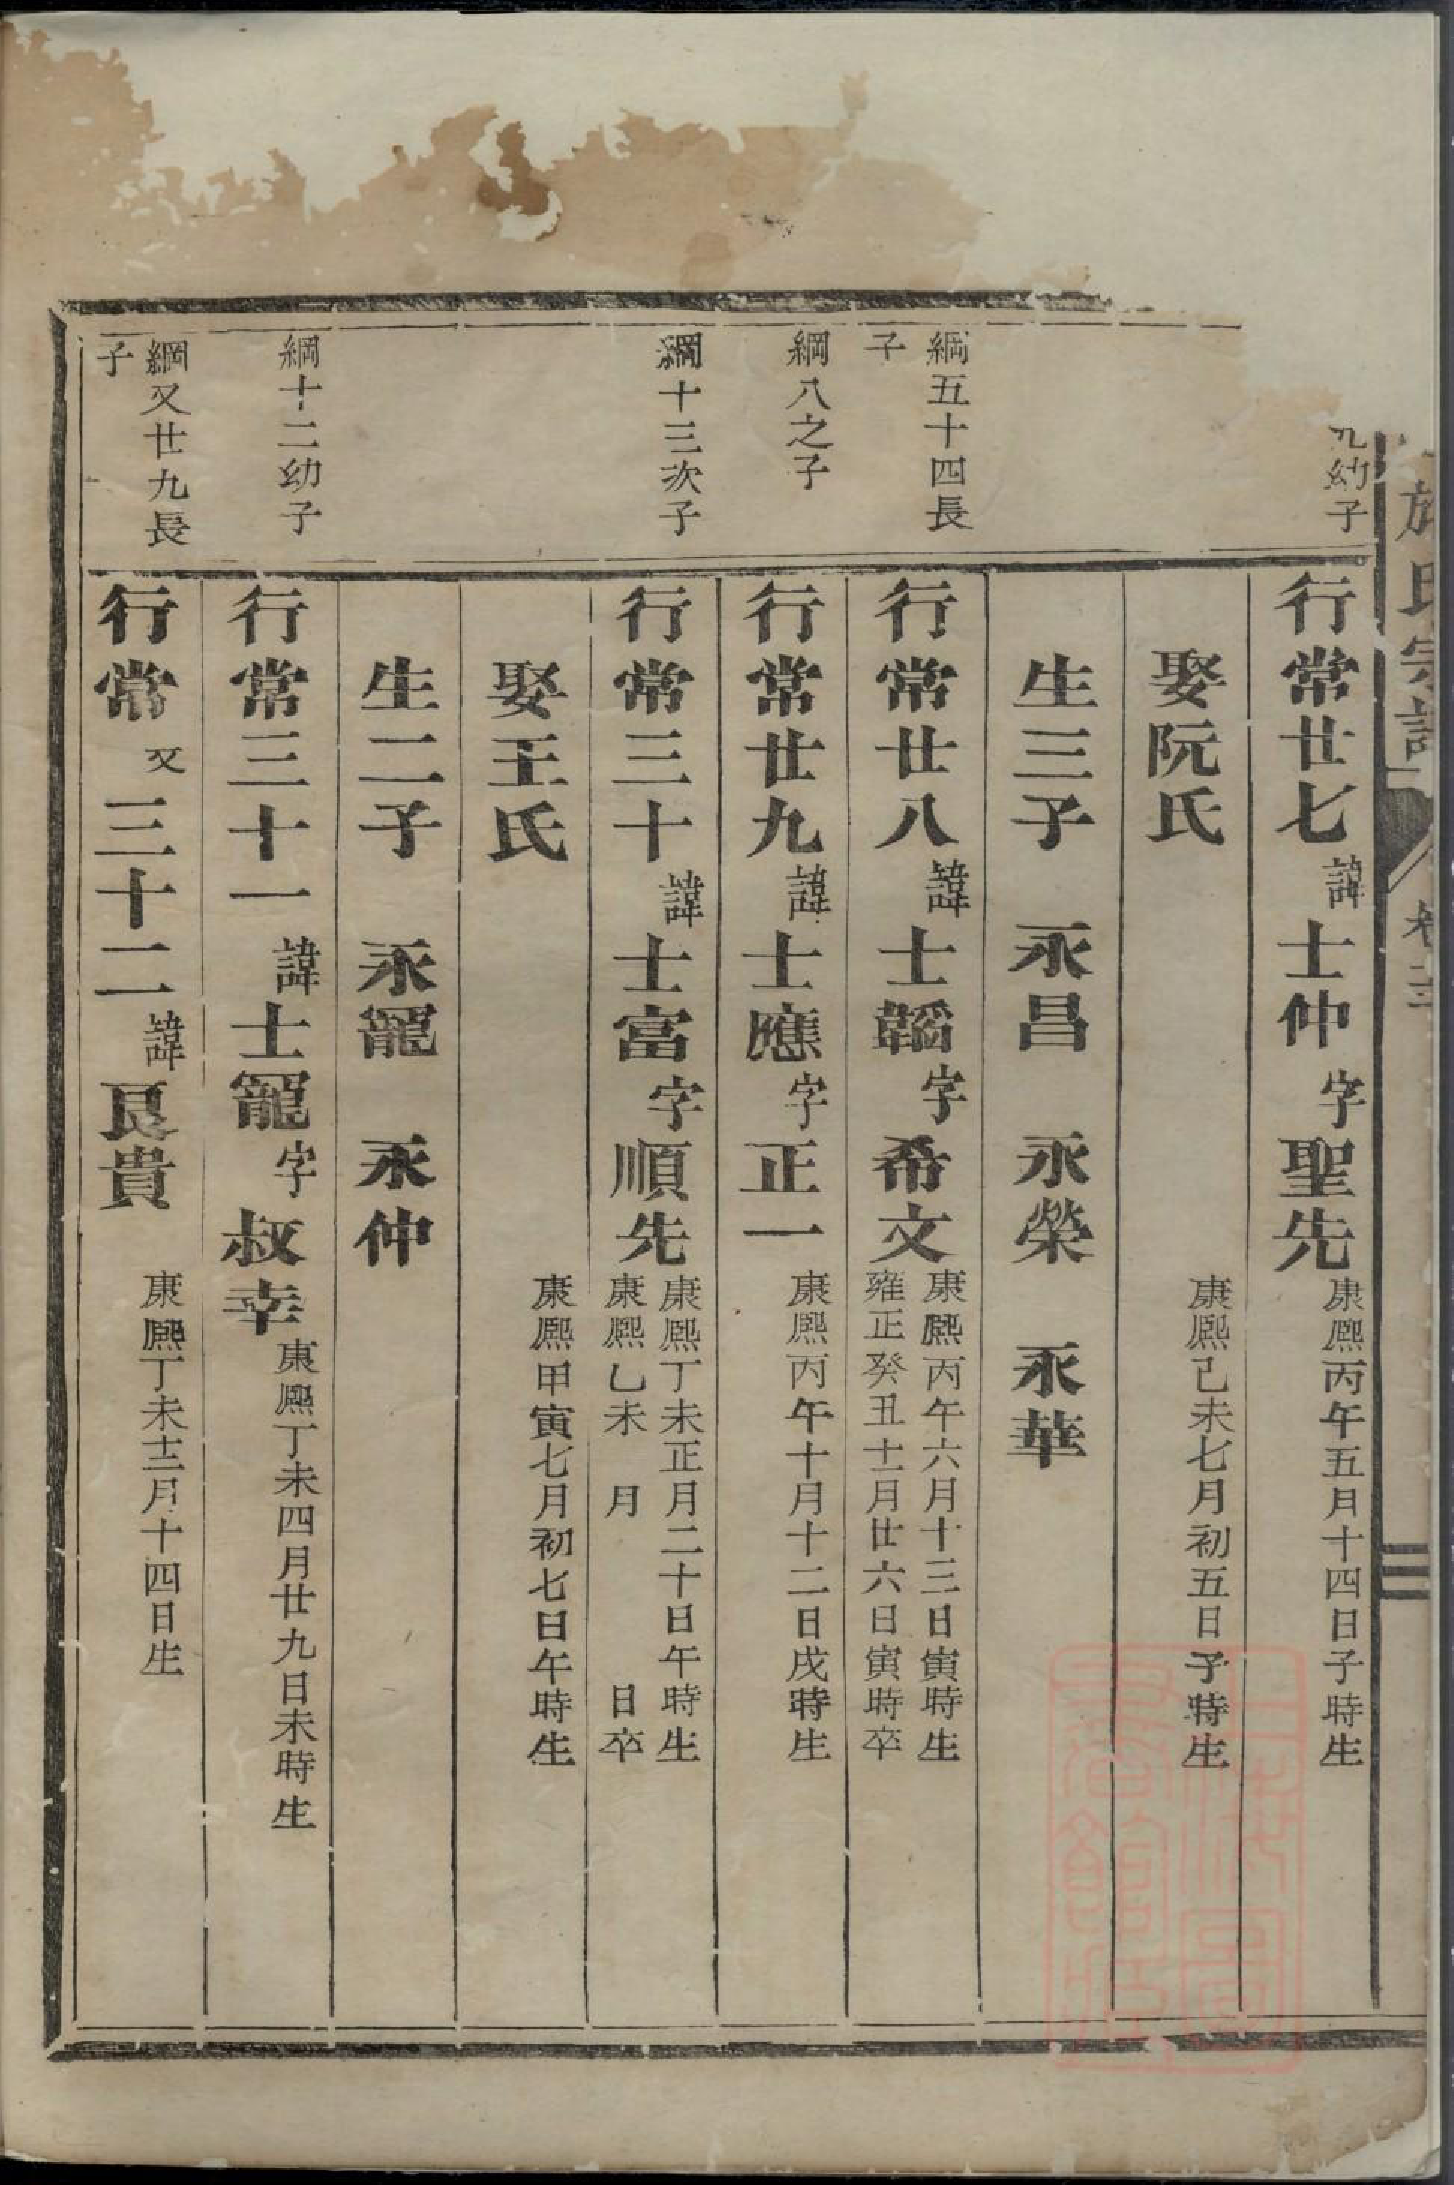 氏宗譜 卷
幼子
行常廿七 諱士仲 字聖先 康熙丙午五月十四日子時生
娶阮氏 康熙己未七月初五日子時生
生三子 永昌 永榮 永華
綱五十四長子
行常廿八 諱士韜 字希文 康熙丙午六月十三日寅時生
雍正癸丑十二月廿六日寅時卒
綱八之子
行常廿九 諱士應 字正一 康熙丙午十月十二日戌時生
綱十三次子
行常三十 諱士富 字順先 康熙丁未正月二十日午時生
康熙乙未 月 日卒
娶王氏 康熙甲寅七月初七日午時生
生二子 永寵 永仲
綱十二幼子
行常三十一 諱士寵 字叔幸 康熙丁未四月廿九日未時生
綱又廿九長子
行常又三十二 諱良貴 康熙丁未十二月十四日生